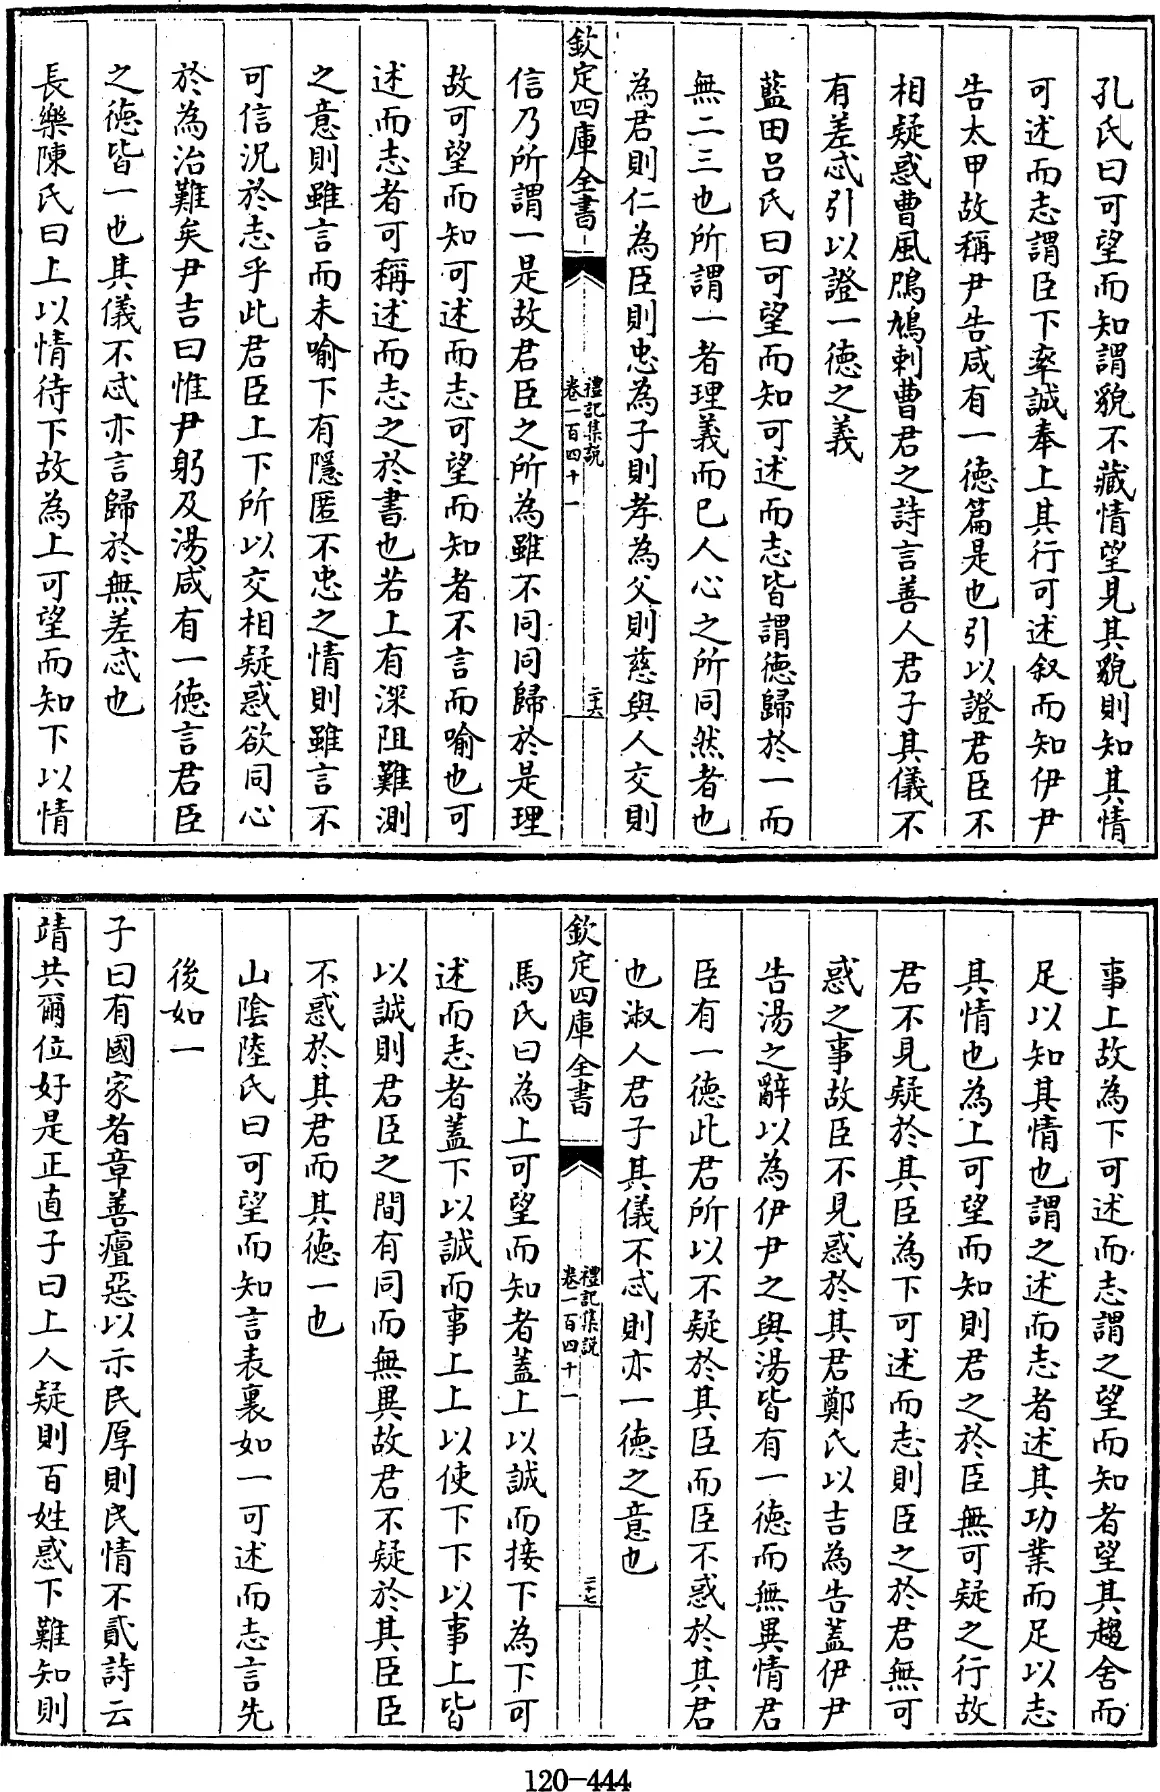 孔氏曰可望而知謂貌不藏情望見其貌則知其情
可述而志謂臣下率誠奉上其行可述叙而知伊尹
告太甲故稱尹告咸有一德篇是也引以證君臣不
相疑惑曹風鳲鳩刺曹君之詩言善人君子其儀不
有差忒引以證一德之義
藍田呂氏曰可望而知可述而志皆謂德歸於一而
無二三也所謂一者理義而已人心之所同然者也
為君則仁為臣則忠為子則孝為父則慈與人交則
欽定四庫全書
禮記集說
卷一百四十一
二十六
信乃所謂一是故君臣之所為雖不同同歸於是理
故可望而知可述而志可望而知者不言而喻也可
述而志者可稱述而志之於書也若上有深阻難測
之意則雖言而未喻下有隱匿不忠之情則雖言不
可信況於志乎此君臣上下所以交相疑惑欲同心
於為治難矣尹吉曰惟尹躬及湯咸有一德言君臣
之德皆一也其儀不忒亦言歸於無差忒也
長樂陳氏曰上以情待下故為上可望而知下以情
事上故為下可述而志謂之望而知者望其趨舍而
足以知其情也謂之述而志者述其功業而足以志
其情也為上可望而知則君之於臣無可疑之行故
君不見疑於其臣為下可述而志則臣之於君無可
惑之事故臣不見惑於其君鄭氏以吉為告蓋伊尹
告湯之辭以為伊尹之與湯皆有一德而無異情君
臣有一德此君所以不疑於其臣而臣不惑於其君
也淑人君子其儀不忒則亦一德之意也
欽定四庫全書
禮記集說
卷一百四十一
二十七
馬氏曰為上可望而知者蓋上以誠而接下為下可
述而志者蓋下以誠而事上上以使下下以事上皆
以誠則君臣之間有同而無異故君不疑於其臣臣
不惑於其君而其德一也
山陰陸氏曰可望而知言表裏如一可述而志言先
後如一
子曰有國家者章善癉惡以示民厚則民情不貳詩云
靖共爾位好是正直子曰上人疑則百姓惑下難知則
120-444